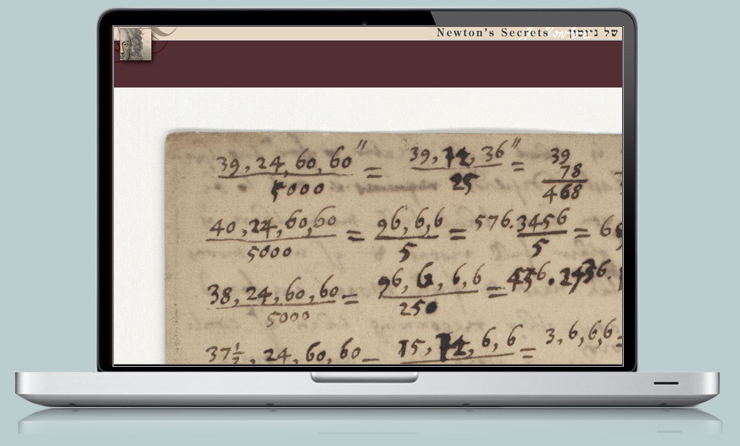 Newton's Secrets של ניוטון
39, 24, 60, 60″ / 5000 = 39, 12, 36″ / 25 = 39
78
468
40, 24, 60, 60 / 5000 = 96, 6, 6 / 5 = 576. 3456 / 5 =
38, 24, 60, 60 / 5000 = 96, 6, 6, 6 / 250 =
37½, 24, 60, 60 = 15, 12, 6, 6 = 3, 6, 6, 6